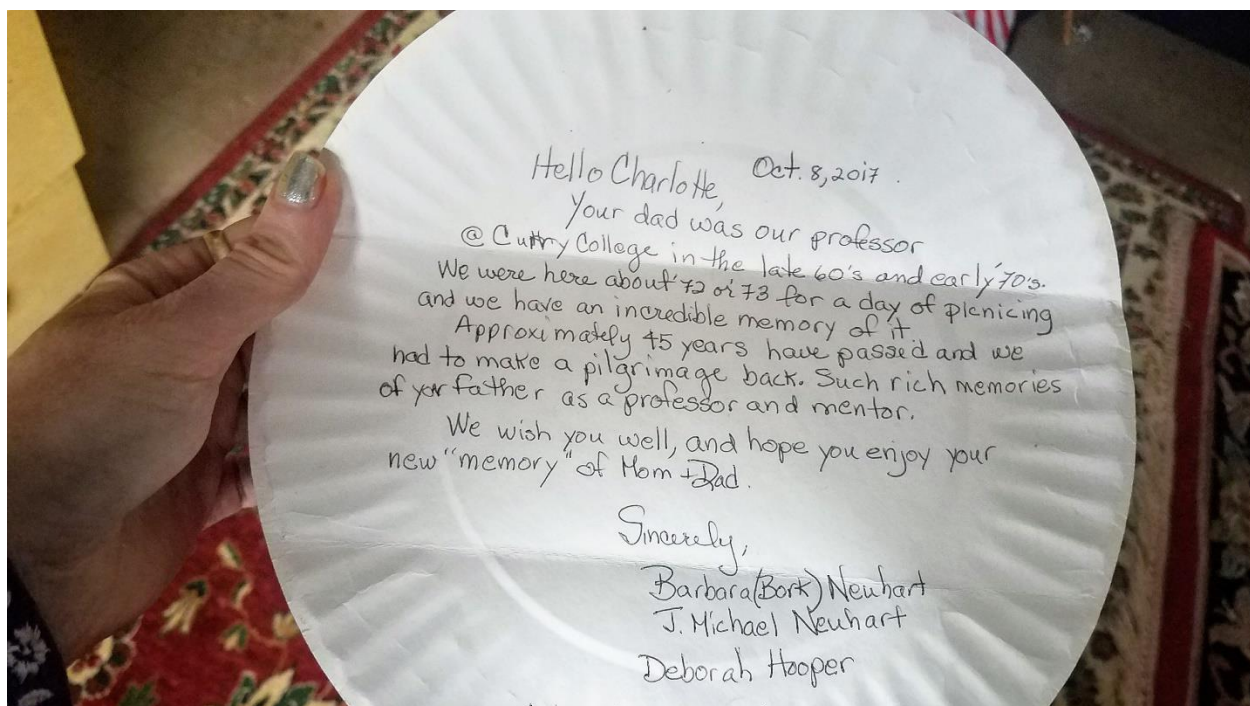 Hello Charlotte, Oct. 8, 2017.
Your dad was our professor
@ Curry College in the late 60's and early '70's.
We were here about '72 or '73 for a day of picnicing
and we have an incredible memory of it.
Approximately 45 years have passed and we
had to make a pilgrimage back. Such rich memories
of your father as a professor and mentor.
We wish you well, and hope you enjoy your
new "memory" of Mom + Dad.
Sincerely,
Barbara (Bork) Neuhart
J. Michael Neuhart
Deborah Hooper